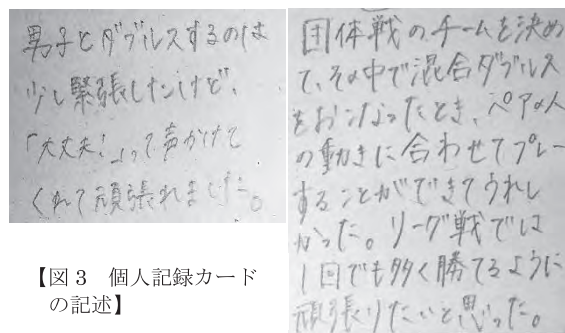 男子とダブルスするのは
少し緊張したけど、
「大丈夫!」って声かけて
くれて頑張れました。
【図3 個人記録カード
の記述】
団体戦のチームを決め
て、その中で混合ダブルス
をおこなったとき、ペアの人
の動きに合わせてプレー
することができてうれし
かった。リーグ戦では
1回でも多く勝てるように
頑張りたいと思った。